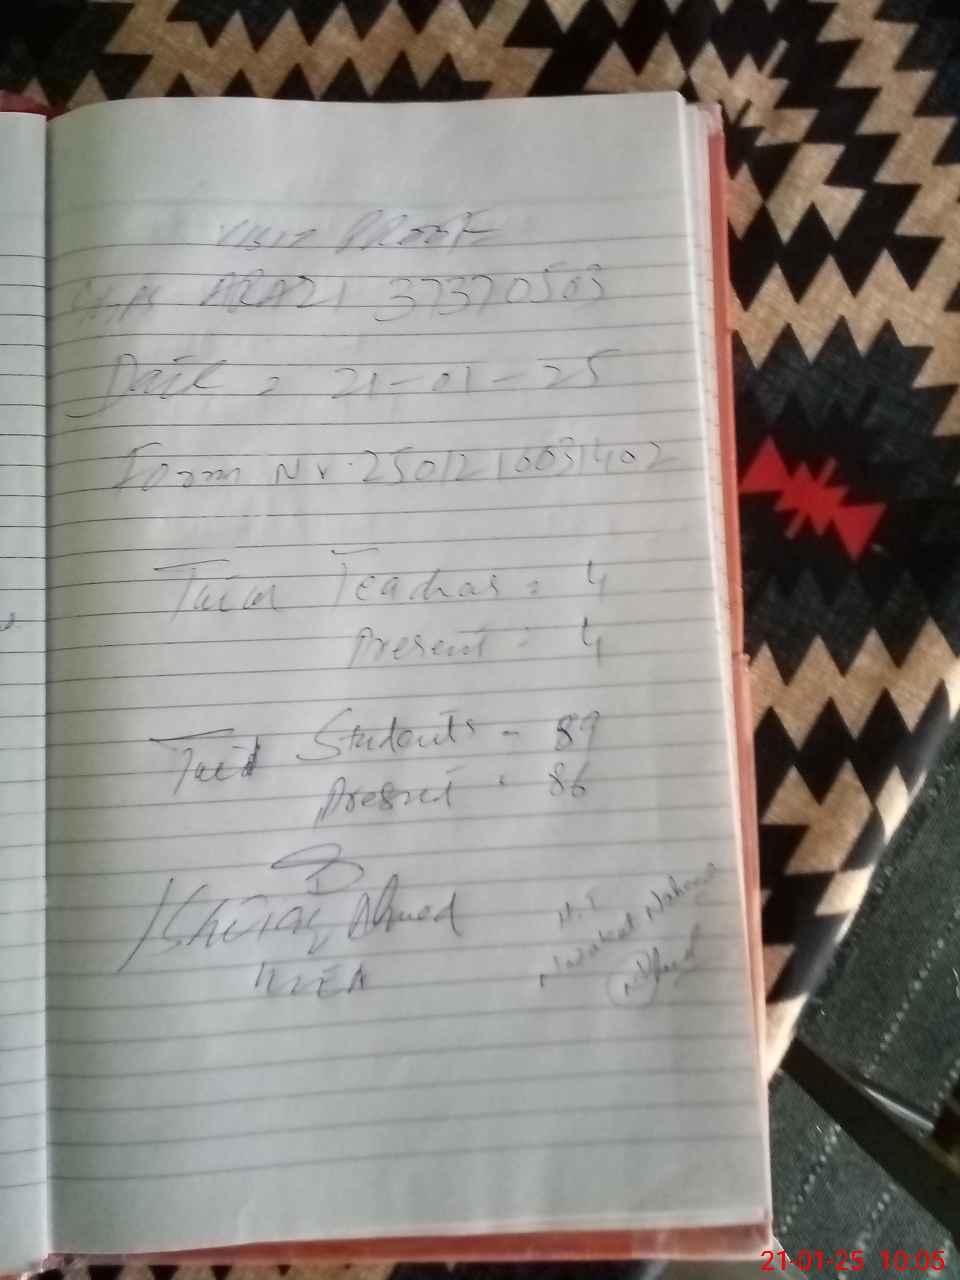 Visit PROOF
ARAZI 37370503
Date = 21-01-25
Form No. 2501210031402
Total Teachers = 4
Present = 4
Total Students - 89
Present - 86
Ahmed
H.T
Nazakat
21-01-25 10:05